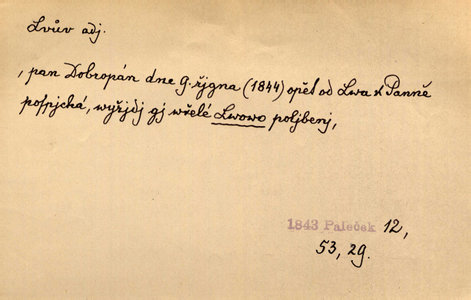 Lvův adj.
, pan Dobropán dne 9. řjgna (1844) opět od Lwa k Panně
pospjchá, wyřjdj gj wřelé Lwowo poljbenj,
1843 Paleček 12,
53, 29.